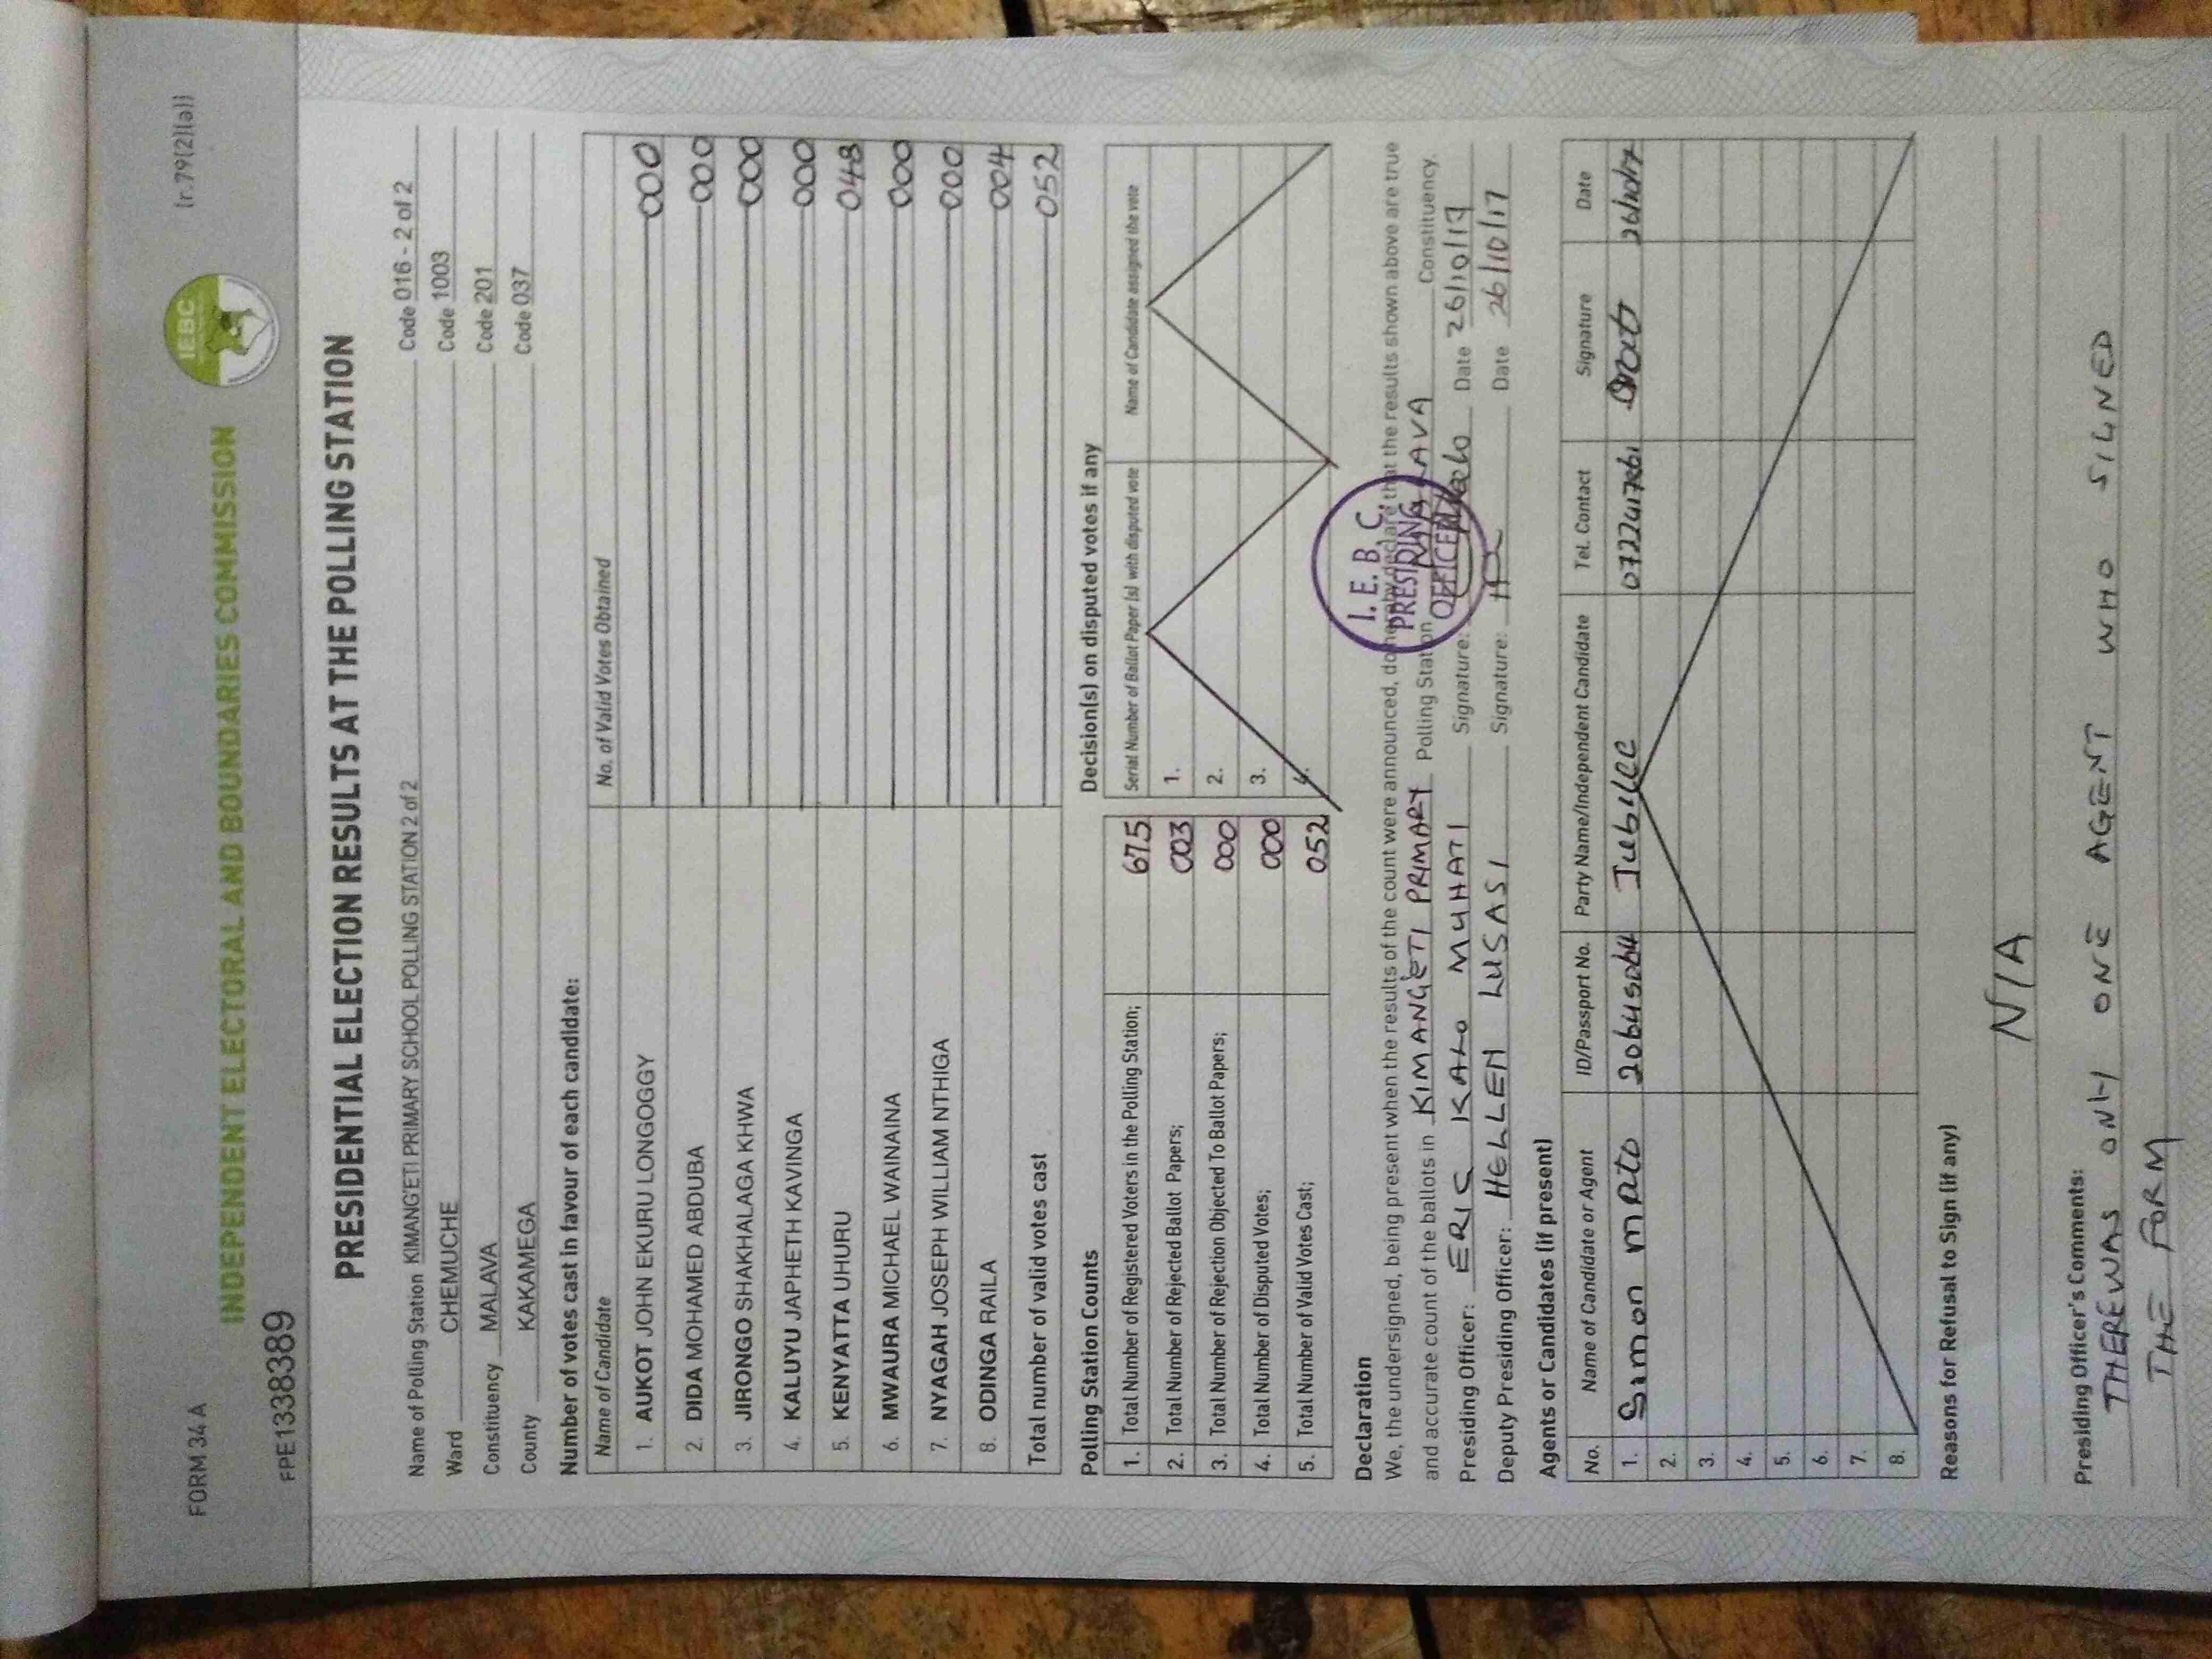 FORM 34 A
(r.79(2)(a))
IEBC
INDEPENDENT ELECTORAL AND BOUNDARIES COMMISSION
FPE1338389
PRESIDENTIAL ELECTION RESULTS AT THE POLLING STATION
Name of Polling Station KIMANG'ETI PRIMARY SCHOOL POLLING STATION 2 of 2 Code 016 - 2 of 2
Ward CHEMUCHE Code 1003
Constituency MALAVA Code 201
County KAKAMEGA Code 037
Number of votes cast in favour of each candidate:
Name of Candidate No. of Valid Votes Obtained
1. AUKOT JOHN EKURU LONGOGGY 000
2. DIDA MOHAMED ABDUBA 000
3. JIRONGO SHAKHALAGA KHWA 000
4. KALUYU JAPHETH KAVINGA 000
5. KENYATTA UHURU 048
6. MWAURA MICHAEL WAINAINA 000
7. NYAGAH JOSEPH WILLIAM NTHIGA 000
8. ODINGA RAILA 004
Total number of valid votes cast 052
Polling Station Counts
1. Total Number of Registered Voters in the Polling Station; 675
2. Total Number of Rejected Ballot Papers; 003
3. Total Number of Rejection Objected To Ballot Papers; 000
4. Total Number of Disputed Votes; 000
5. Total Number of Valid Votes Cast; 052
Decision(s) on disputed votes if any
Serial Number of Ballot Paper (s) with disputed vote Name of Candidate assigned the vote
1.
2.
3.
4.
Declaration
We, the undersigned, being present when the results of the count were announced, do hereby declare that the results shown above are true
and accurate count of the ballots in KIMANG'ETI PRIMARY Polling Station MALAVA Constituency.
Presiding Officer: ERIC KALO MUHATI Signature: Date 26/10/17
Deputy Presiding Officer: HELLEN LUSASI Signature: Date 26/10/17
I.E.B.C.
PRESIDING
OFFICER
Agents or Candidates (if present)
No. Name of Candidate or Agent ID/Passport No. Party Name/Independent Candidate Tel. Contact Signature Date
1. Simon Jubilee 26/10/17
2.
3.
4.
5.
6.
7.
8.
Reasons for Refusal to Sign (if any)
N/A
Presiding Officer's Comments:
THERE WAS ONLY ONE AGENT WHO SIGNED
THE FORM